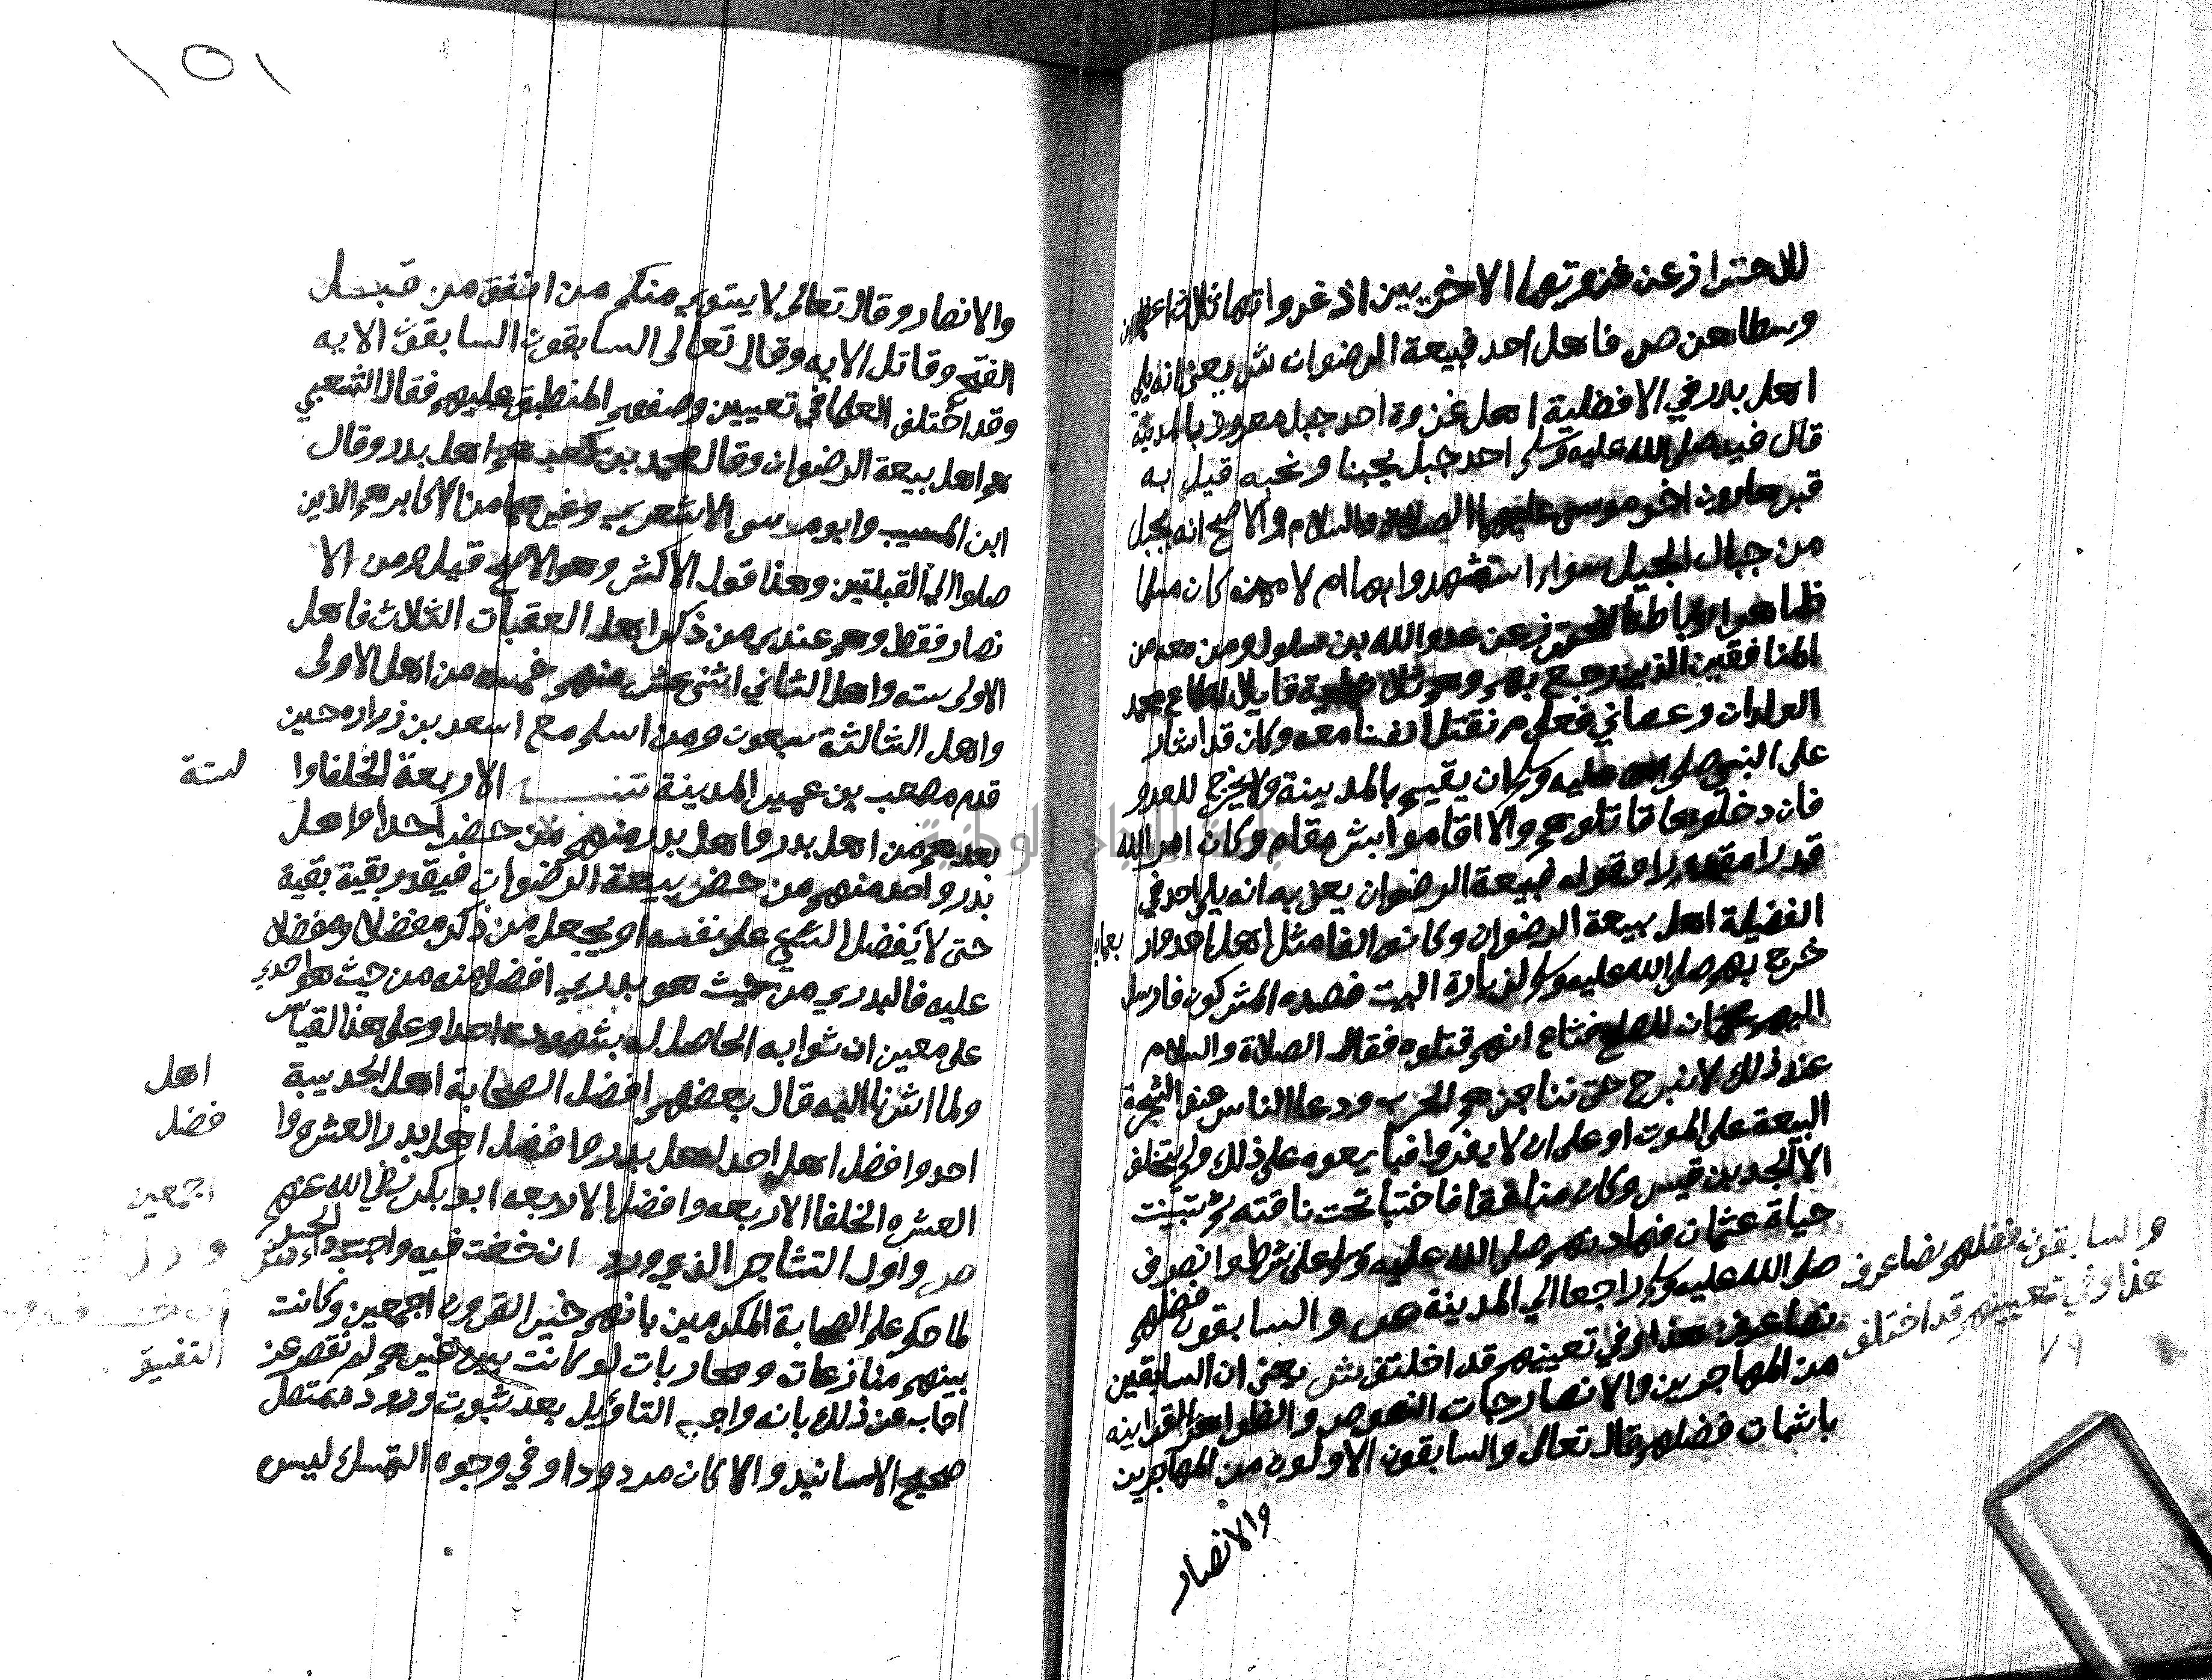 للاحتراز عن غزوتها الاخريين اذ غزواتها ثلاث اعظمهن
وسطاهن ص فاهل احد فبيعة الرضوان ش يعني انه يلي
اهل بدر في الافضلية اهل غزوة احد جبل معروف بالمدينة
قال فيه صلى الله عليه وسلم احد جبل يحبنا ونحبه قيل به
قبر هارون اخو موسى عليهما الصلاة والسلام والاصح انه بجبل
من جبال سواء استشهدوا بها ام لا كان مسلما
ظاهرا وباطنا عن عدو الله بن سلول ومن معه من
المنافقين الذين رجع بهم وهو قايلا اطاع محمد
الولدان وعصاني فعلام نقتل انفسنا معه وكان قد اشار
على النبي صلى الله عليه وسلم بان يقيم بالمدينة ولا يخرج للعدو
فان دخلوها قاتلوهم والا اقاموا بشر مقام وكان امر الله
قدرا مقدورا وقوله فبيعة الرضوان يعني به انه يلي احد في
الفضيلة اهل بيعة الرضوان وكانوا الفا مثل اهل احد
خرج بهم صلى الله عليه وسلم لزيارة البيت فصده المشركون فارسل
اليهم عثمان للصلح فشاع انهم قتلوه فقال الصلاة والسلام
عند ذلك لا نبرح حتى نناجزهم الحرب ودعا الناس عند الشجرة
البيعة على الموت او على ان لا يفروا فبايعوه على ذلك ولم يتخلف
الا الجد بن قيس وكان منافقا فاختبا تحت ناقته ثم تبينت
حياة عثمان فهادنهم صلى الله عليه وسلم على شرط وانصرف
صلى الله عليه وسلم راجعا الى المدينة ص والسابقون فضلهم
نصا عرف هذا وفي تعيينهم قد اختلف ش يعني ان السابقين
من المهاجرين والانصار جات النصوص والظواهر القرانية
باثبات فضلهم قال تعالى والسابقون الاولون من المهاجرين
والانصار
والسابقون فضلهم نصا عرف
هذا وفي تعيينهم قد اختلف
١٥١
والانصار وقال تعالى لا يستوي منكم من انفق من قبل
الفتح وقاتل الايه وقال تعالى السابقون السابقون الايه
وقد اختلف العلما في تعيين وصفهم المنطبق عليهم فقال الشعبي
هم اهل بيعة الرضوان وقال محمد بن كعب هم اهل بدر وقال
ابن المسيب وابو موسى الاشعري وغيرهما من الاكابر هم الذين
صلوا الى القبلتين وهذا قول الاكثر وهو الاصح قيل ومن الا
نصار فقط وهم عندي من ذكر اهل العقبات الثلاث فاهل
الاولى سته واهل الثاني اثنى عشر منهم خمسه من اهل الاولى
واهل الثالثة سبعون ومن اسلم مع اسعد بن زراره حين
قدم مصعب بن عمير المدينة تنبيه الاربعة الخلفا وا لستة
بعدهم من اهل بدر واهل بدر منهم من حضر احدا واهل
بدر واحد منهم من حضر بيعة الرضوان فيقدر بقية بقية
حتى لا يفضل الشي على نفسه او يجعل من ذكر مفضلا ومفضلا
عليه فالبدري من حيث هو بدري افضل منه من حيث هو احدي
على معين ان ثوابه الحاصل له بشهوده احدا وعلى هذا القياس
ولما اشرنا اليه قال بعضهم افضل الصحابة اهل الحديبية اهل
احد وافضل اهل احد اهل بدر وافضل اهل بدر العشره وا فضل
العشره الخلفا الاربعه وافضل الاربعه ابو بكر رضي الله عنهم اجمعين
ص واول التشاجر الذي ورد ان خضت فيه واجتنب داء الحسد
لما حكم على الصحابة المكرمين بانهم خير القرون اجمعين وكانت
بينهم منازعات ومحاربات لو كانت بين غيرهم لم تقصر عن التفسيق
اجاب عن ذلك بانه واجب التاويل بعد ثبوت وروده بمتصل
صحيح الاسانيد والا كان مردودا وفي وجوه التمسك ليس